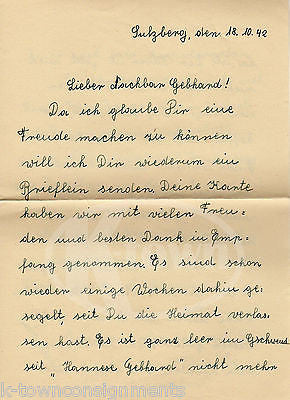 Sulzberg, den 18.10.42
Lieber Nachbar Gebhard!
Da ich glaube Dir eine
Freude machen zu können
will ich Dir wiederum ein
Brieflein senden. Deine Karte
haben wir mit vielen Freu-
den und besten Dank in Emp-
fang genommen. Es sind schon
wieder einige Wochen dahin ge-
segelt, seit Du die Heimat verlas-
sen hast. Es ist ganz leer im Gschwend
seit "Hannese Gebhard" nicht mehr
k-townconsignments